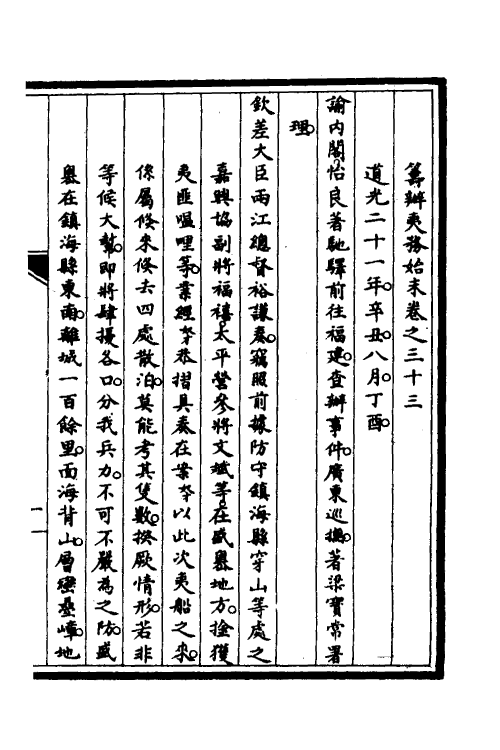 籌辦夷務始末卷之三十三
道光二十一年。辛丑。八月。丁酉。
諭內閣。怡良著馳驛前往福建。查辦事件。廣東巡撫。著梁寶常署
理。
欽差大臣兩江總督裕謙奏。竊照前據防守鎮海縣穿山等處之
嘉興協副將福禧。太平營參將文斌等。在盛嶴地方。擒獲
夷匪嗢哩等。業經奴才恭摺具奏在案。奴才以此次夷船之來。
係屬倏來倏去。四處散泊。莫能考其隻數。揆厥情形。若非
等候大幫。即將肆擾各口。分我兵力。不可不嚴為之防。盛
嶴在鎮海縣東南。離城一百餘里。面海背山。層巒疊嶂。地
一